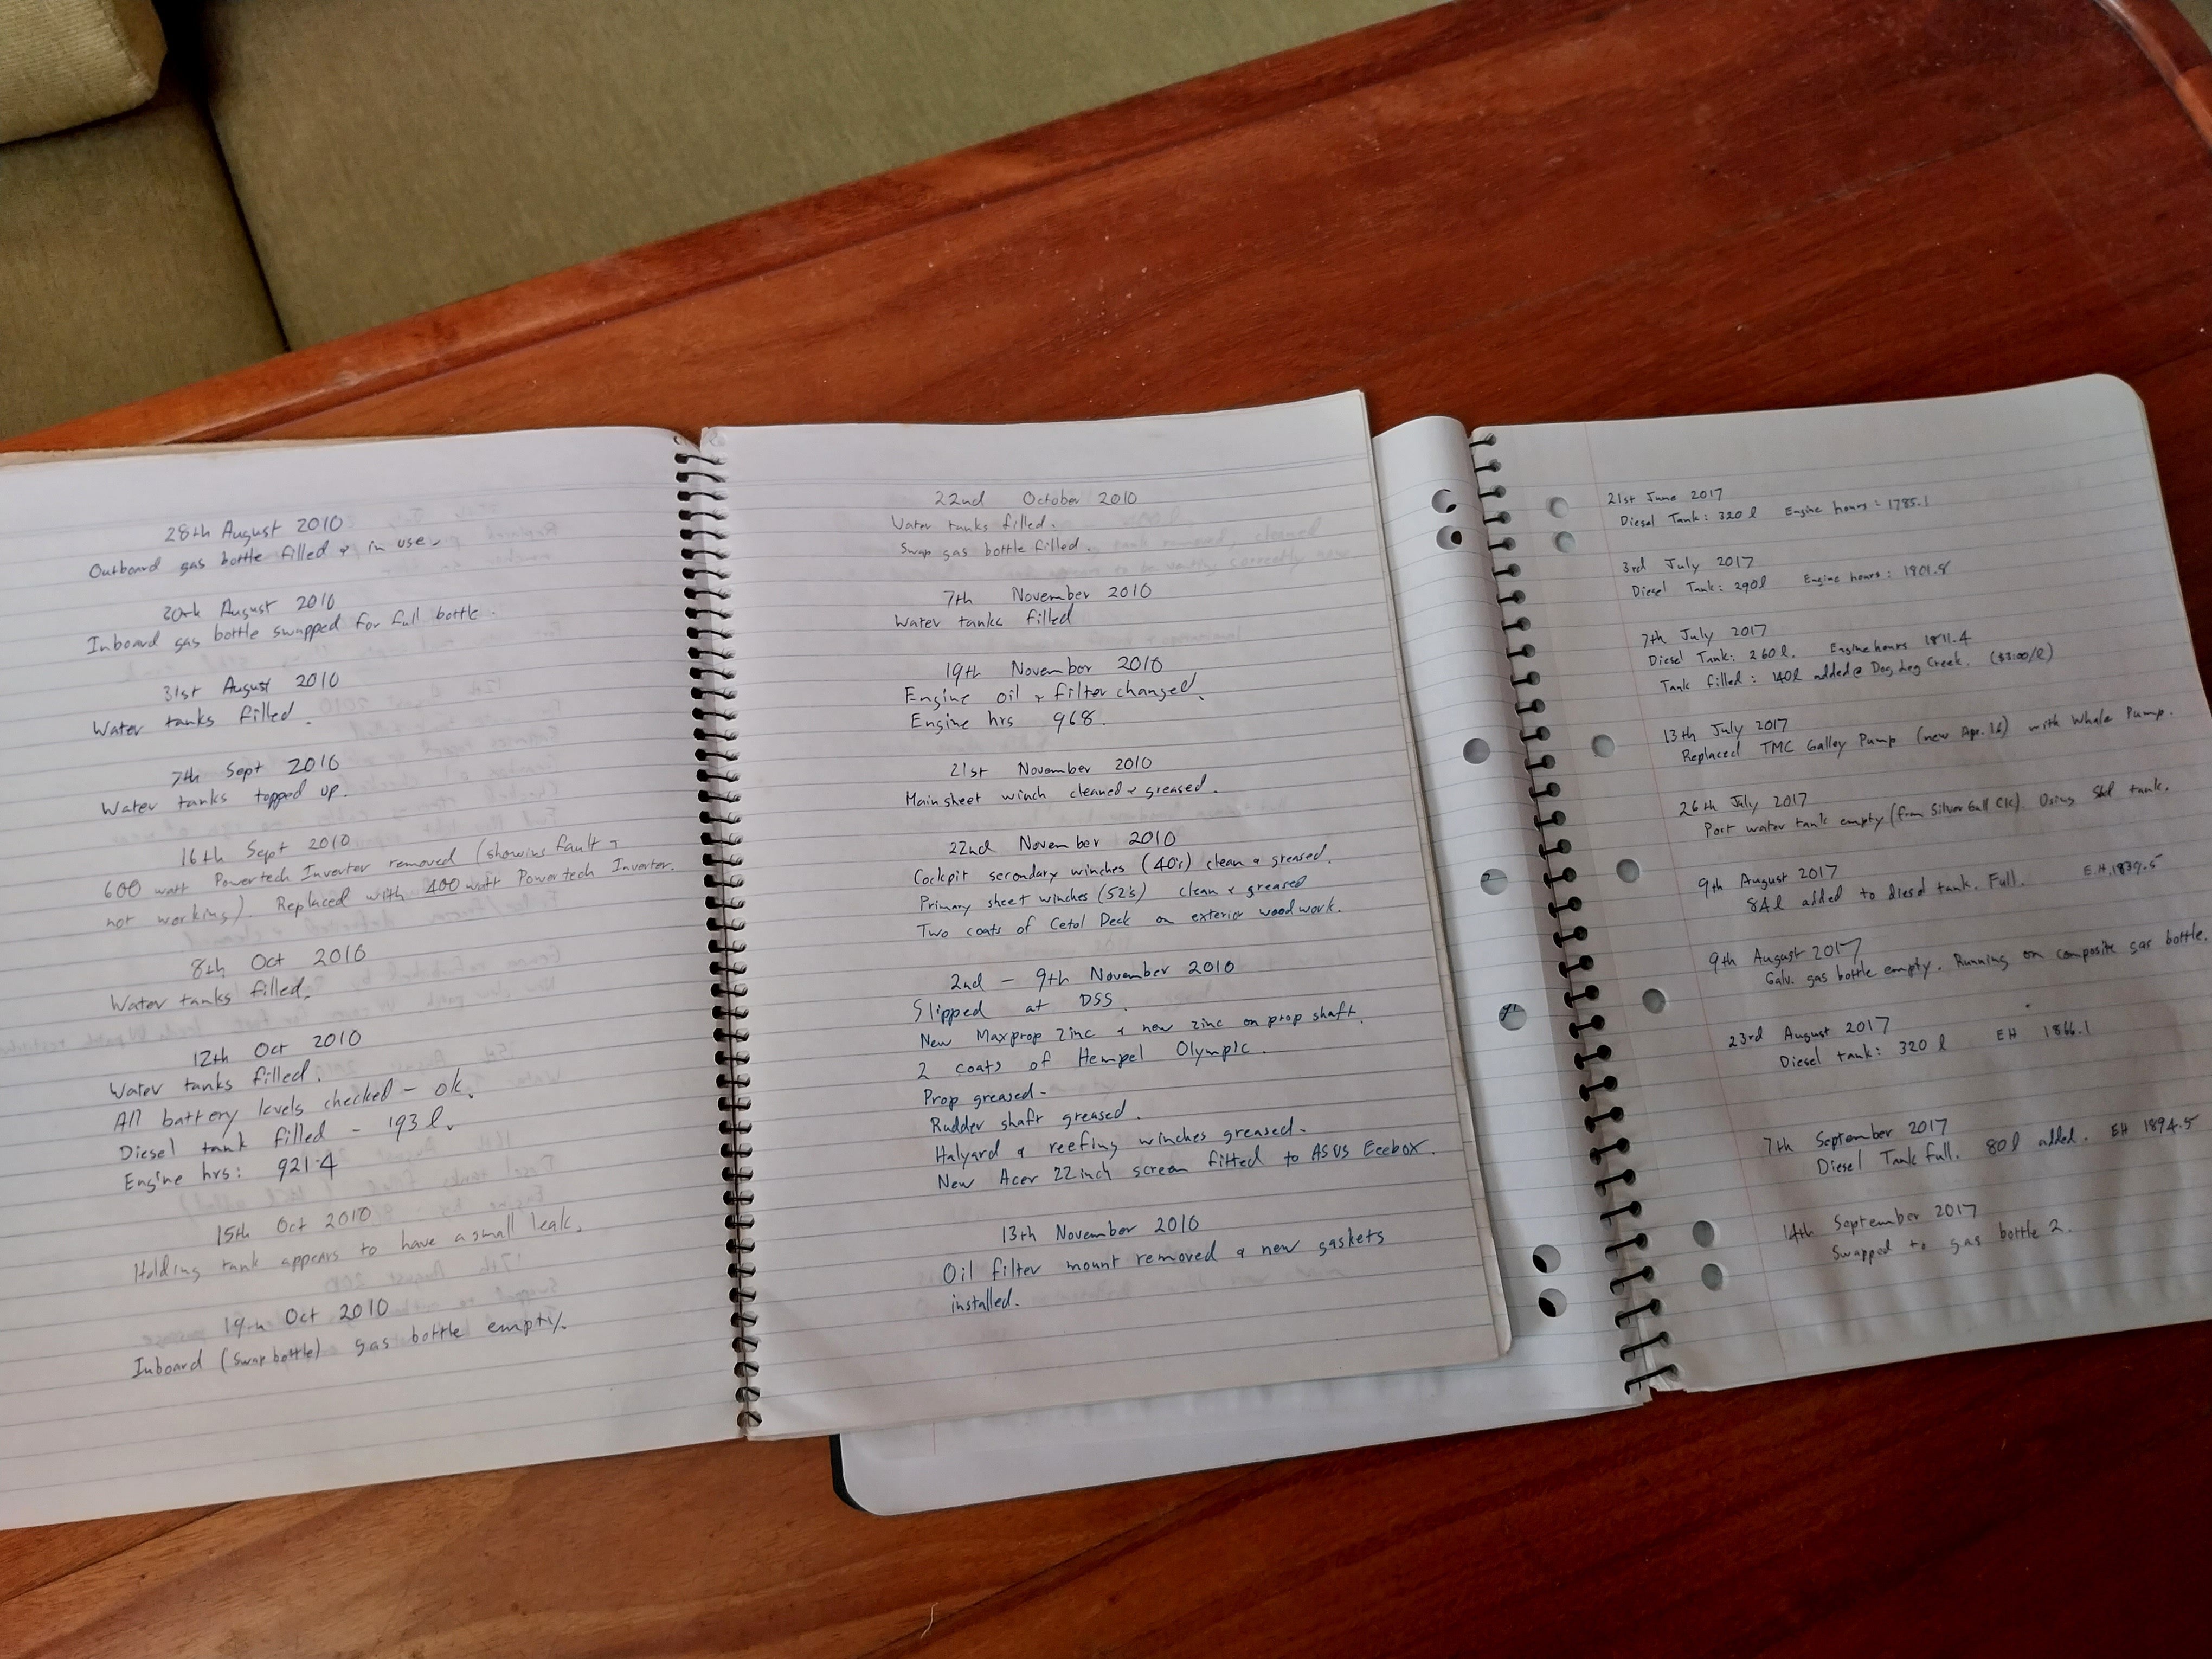 28th August 2010
Outboard gas bottle filled & in use.
August 2010
Inboard gas bottle swapped for full bottle.
31st August 2010
Water tanks filled.
7th Sept 2010
Water tanks topped up.
16th Sept 2010
600 watt Powertech Inverter removed (showing fault &
not working). Replaced with 400 watt Powertech Inverter.
8th Oct 2010
Water tanks filled.
12th Oct 2010
Water tanks filled.
All battery levels checked - ok.
Diesel tank filled - 193 l.
Engine hrs: 921.4
15th Oct 2010
Holding tank appears to have a small leak.
19th Oct 2010
Inboard (swap bottle) gas bottle empty.
22nd October 2010
Water tanks filled.
Swap gas bottle filled.
7th November 2010
Water tanks filled
19th November 2010
Engine oil & filter changed.
Engine hrs 968.
21st November 2010
Main sheet winch cleaned & greased.
22nd November 2010
Cockpit secondary winches (40's) clean & greased.
Primary sheet winches (52's) clean & greased
Two coats of Cetol Deck on exterior woodwork.
2nd - 9th November 2010
Slipped at DSS.
New Maxprop zinc & new zinc on prop shaft.
2 coats of Hempel Olympic.
Prop greased.
Rudder shaft greased.
Halyard & reefing winches greased.
New Acer 22 inch screen fitted to ASUS Eeebox.
13th November 2010
Oil filter mount removed & new gaskets
installed.
21st June 2017
Diesel Tank: 320 l Engine hours: 1785.1
3rd July 2017
Diesel Tank: 290 l Engine hours: 1801.8
7th July 2017
Diesel Tank: 260 l. Engine hours 1811.4
Tank filled: 140 l added @ Dog Leg Creek. ($3.00/l)
13th July 2017
Replaced TMC Galley Pump (new Apr. 16) with Whale Pump.
26th July 2017
Port water tank empty (from Silver Gull Ck). Using Stbd tank.
9th August 2017
84 l added to diesel tank. Full. E.H. 1839.5
9th August 2017
Galv. gas bottle empty. Running on composite gas bottle.
23rd August 2017
Diesel tank: 320 l EH 1866.1
7th September 2017
Diesel Tank full. 80 l added. EH 1894.5
14th September 2017
Swapped to gas bottle 2.